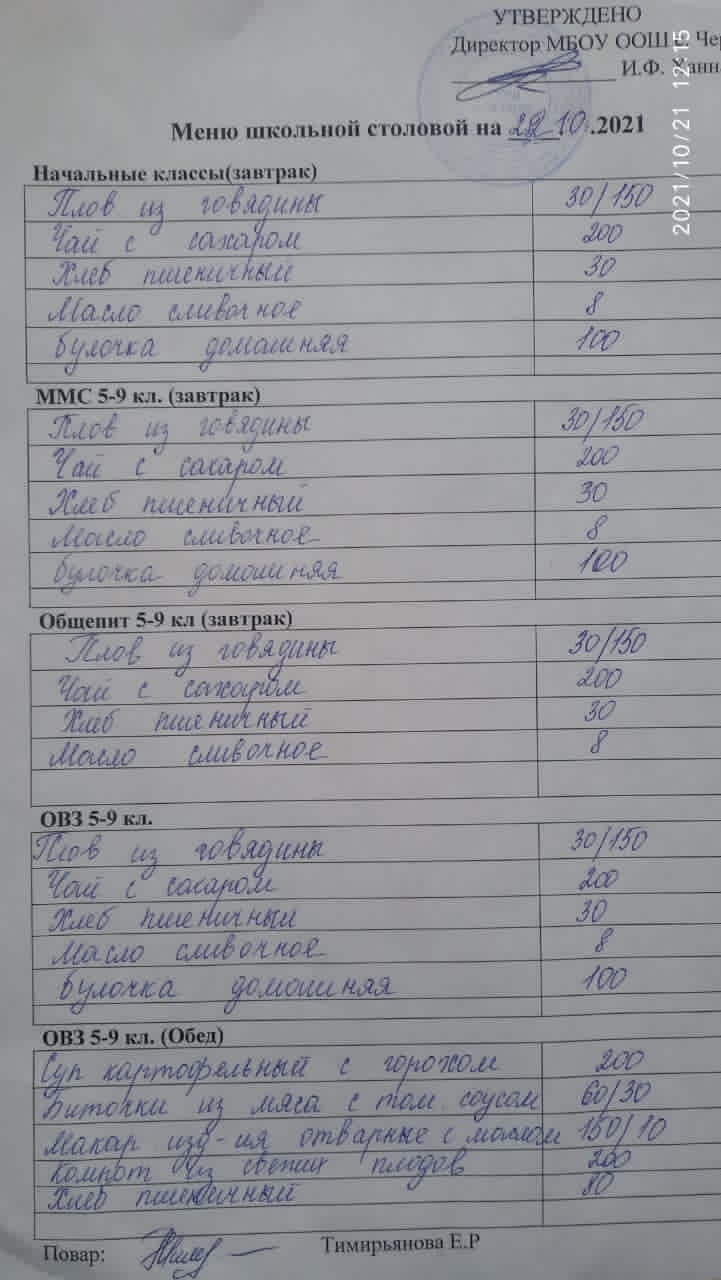 УТВЕРЖДЕНО
Директор МБОУ ООШ с. Чер
И.Ф. Ханн
2021/10/21 12:15
Меню школьной столовой на 22.10.2021
Начальные классы(завтрак)
Плов из говядины 30/150
Чай с сахаром 200
Хлеб пшеничный 30
Масло сливочное 8
Булочка домашняя 100
ММС 5-9 кл. (завтрак)
Плов из говядины 30/150
Чай с сахаром 200
Хлеб пшеничный 30
Масло сливочное 8
Булочка домашняя 100
Общепит 5-9 кл (завтрак)
Плов из говядины 30/150
Чай с сахаром 200
Хлеб пшеничный 30
Масло сливочное 8
ОВЗ 5-9 кл.
Плов из говядины 30/150
Чай с сахаром 200
Хлеб пшеничный 30
Масло сливочное 8
Булочка домашняя 100
ОВЗ 5-9 кл. (Обед)
Суп картофельный с горохом 200
Биточки из мяса с том. соусом 60/30
Макар. изд-ия отварные с маслом 150/10
Компот из свежих плодов 200
Хлеб пшеничный 80
Повар: Тимирьянова Е.Р